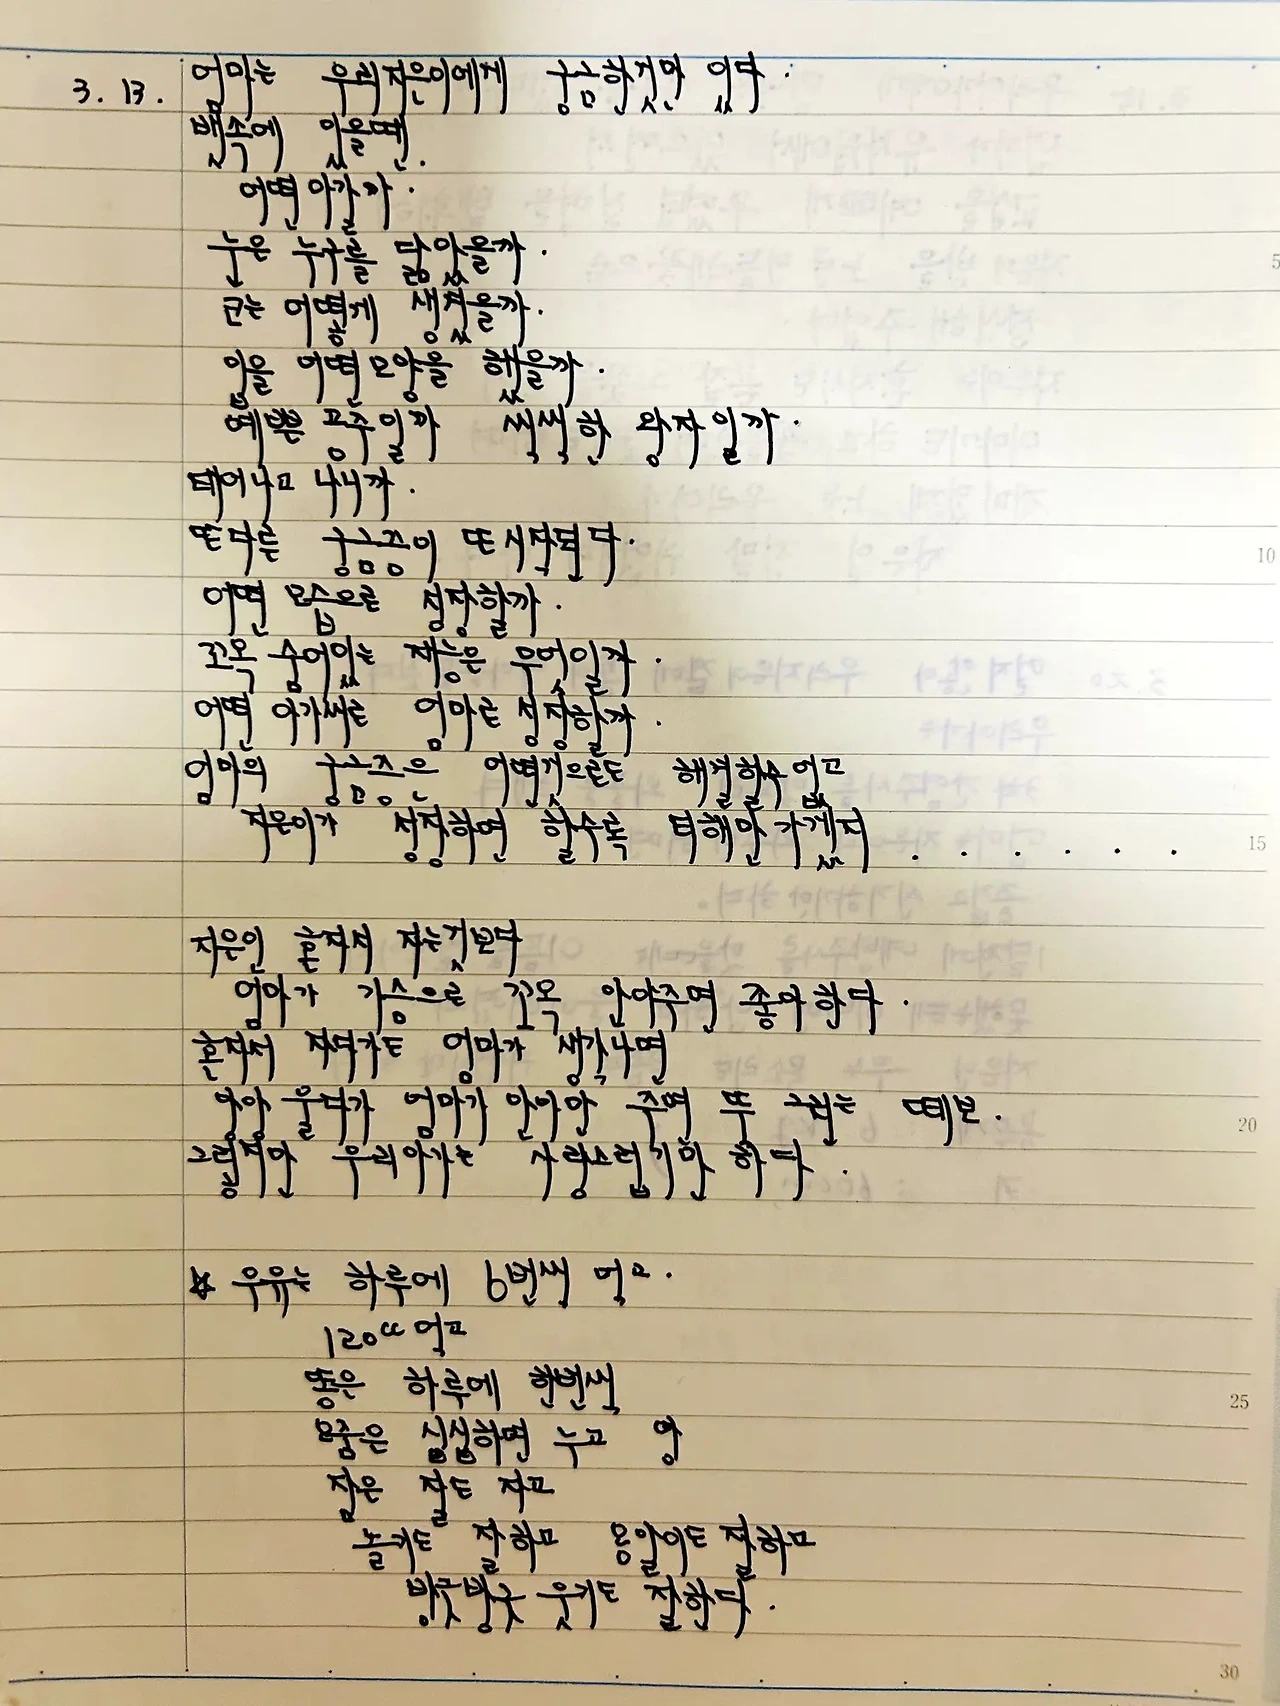 3. 13. 엄마는 우리지은이에게 궁금한것이 있다.
뱃속에 있을땐.
어떤아가일까.
눈은 누구를 닮았을까.
코는 어떻게 생겼을까.
입을 어떤모양을 했을까.
예쁜 공주일까 씩씩한 왕자일까.
태어나고 나니까.
또다른 궁금증이 또시작된다.
어떤 모습으로 성장할까.
꼬옥 숨어있는 재능은 무엇일까.
어떤 아가씨로 엄마로 성장할까.
엄마의 궁금증은 어떤것으로도 해결할수없고
지은이가 성장하면 할수록 더해만가겠지 . . . . . .
지은인 혼자서 자는것보다
엄마가 가슴으로 꼬옥 안아주면 좋아한다.
혼자서 자다가도 엄마가 생각나면
앙앙 울다가 엄마가 안아만 주며 뚝 그치는 떼보.
그렇지만 우리아가는 사랑스럽기만 하다.
☆ 우유는 하루에 6번씩 먹고.
120cc 먹고
똥은 하루에 한번씩
오줌은 심심하면 누고 앙
잠은 잘도 자고
놀기도 잘하고 옹알이도 잘하고
방긋방긋 웃기도 잘한다.
5
10
15
20
25
30